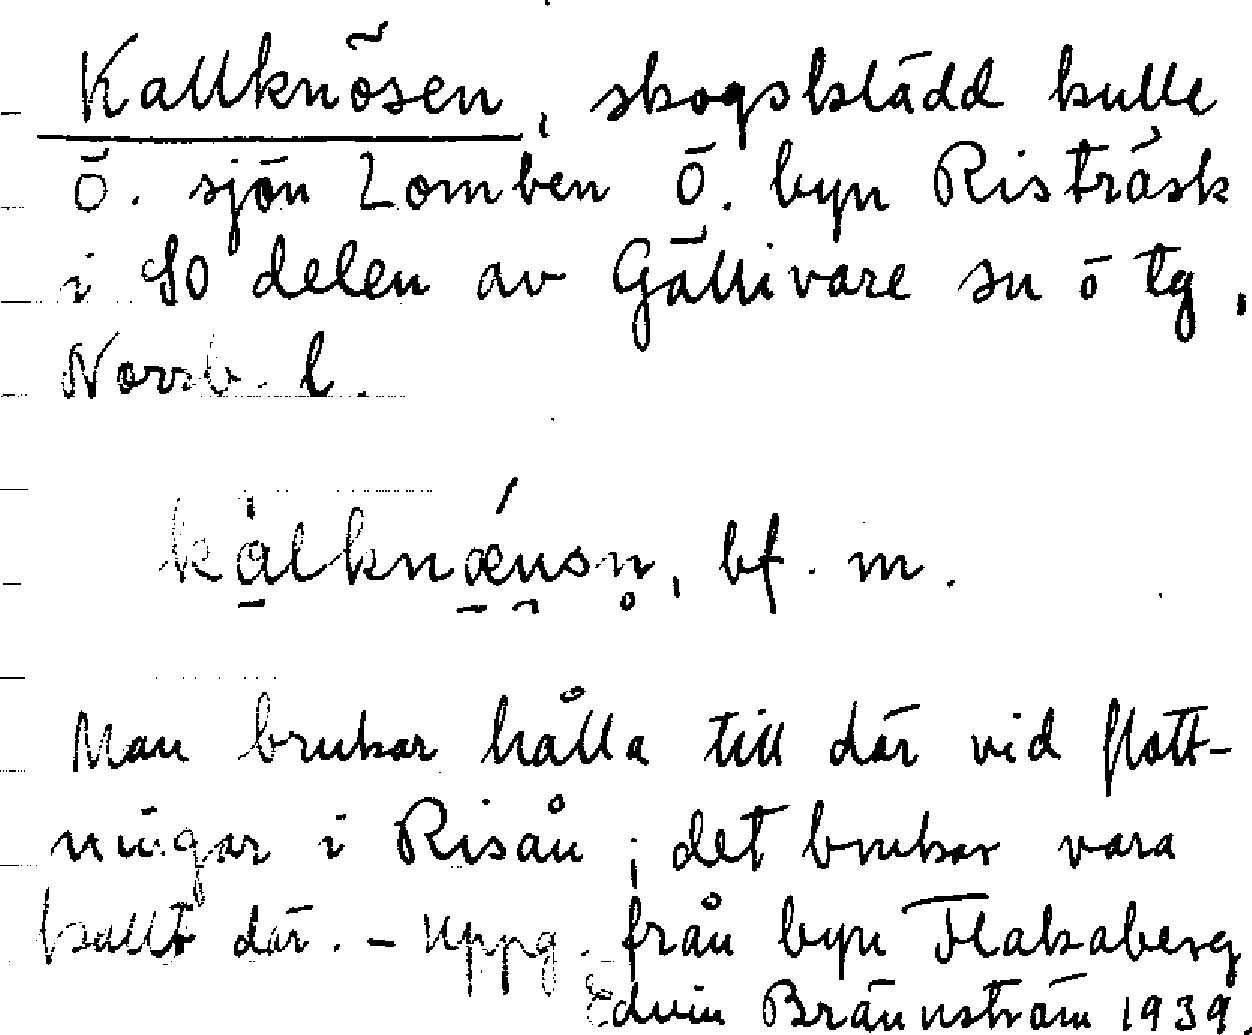 Kallknösen, skogsklädd kulle
ö. sjön Lomben ö. byn Risträsk
i SO delen av Gällivare sn o tg,
Norrb. l.
kàlknǽusn̥, bf. m.
Man brukar hålla till där vid flott-
ningar i Risån; det brukar vara
kallt där. - Uppg. från byn Flakaberg
Edvin Brännström 1939.